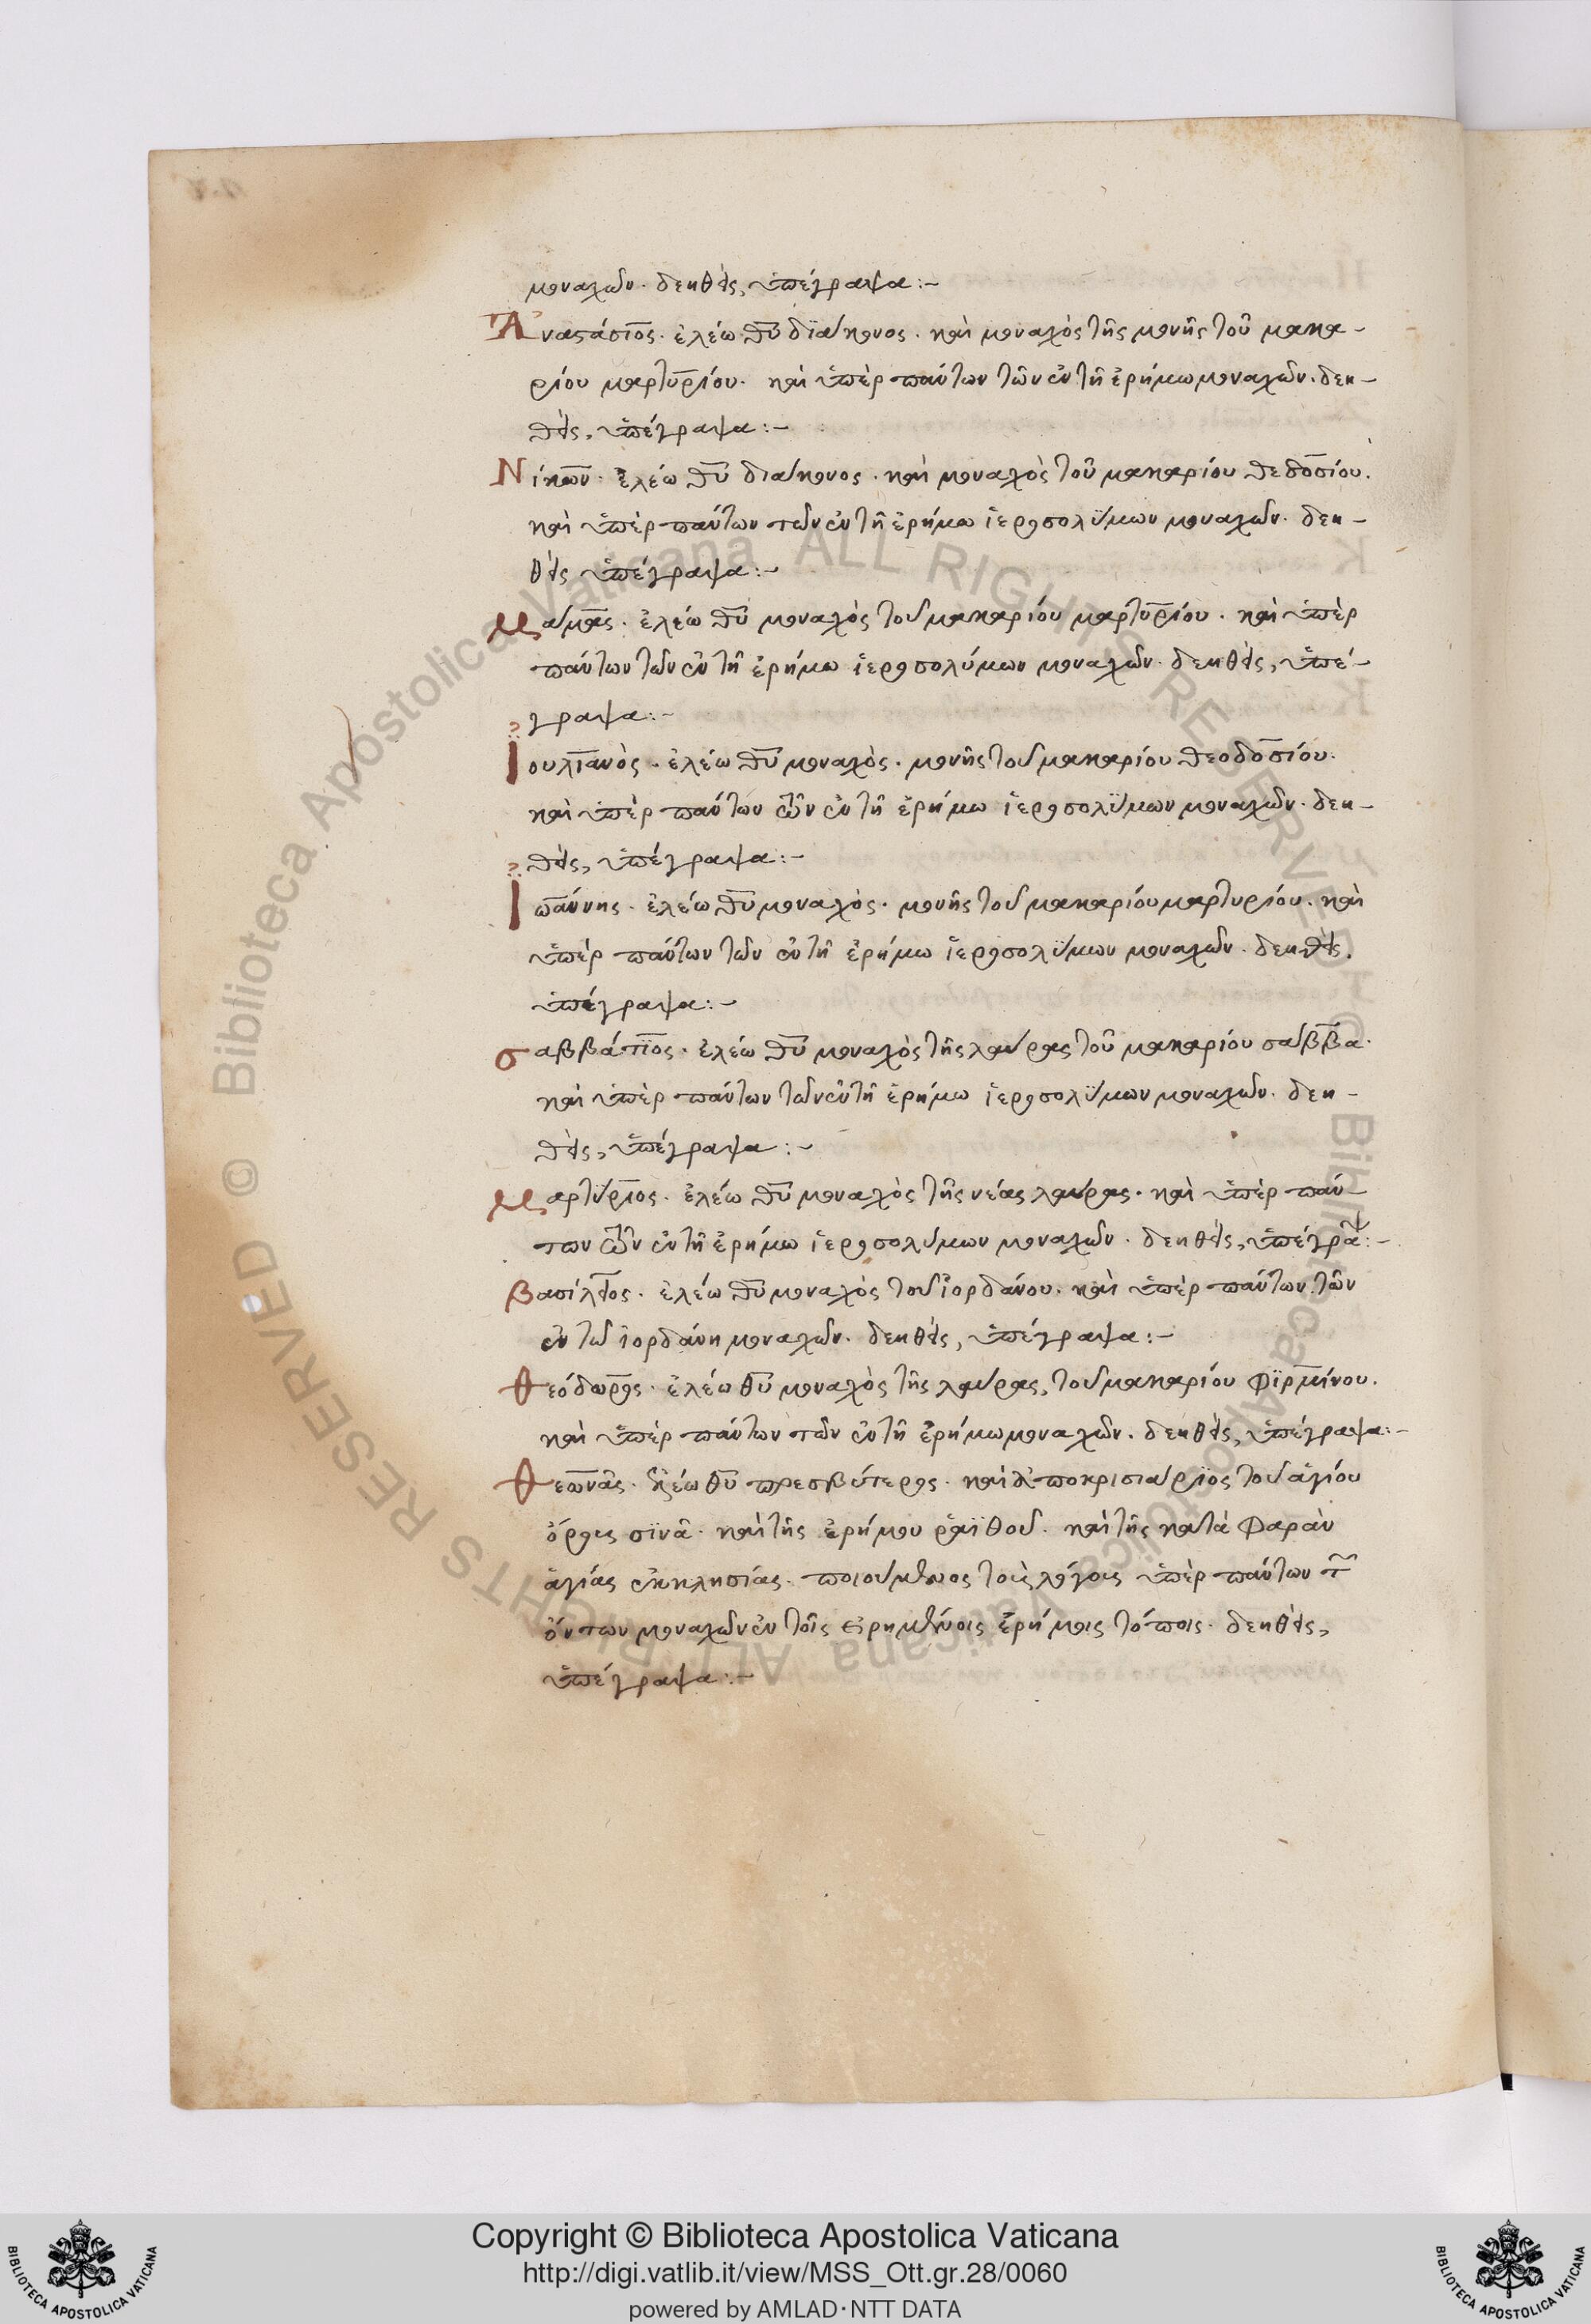 μοναχῶν· δεηθεὶς, ὑπέγραψα:-
Ἀναστάσιος· ἐλέω θυ διάκονος· καὶ μοναχὸς τῆς μονῆς τοῦ μακα-
ρίου μαρτυρίου· καὶ ὑπὲρ πάντων τῶν ἐν τῆ ἐρήμω μοναχῶν· δεη-
θεὶς, ὑπέγραψα:-
Νίκων· ἐλέω θυ διάκονος· καὶ μοναχὸς τοῦ μακαρίου θεδοσίου·
καὶ ὑπὲρ πάντων τῶν ἐν τῆ ἐρήμω ἱεροσολύμων μοναχῶν· δεη-
θεὶς ὑπέγραψα:-
Μάμας· ἐλέω θυ μοναχὸς τοῦ μακαρίου μαρτυρίου· καὶ ὑπὲρ
πάντων τῶν ἐν τῆ ἐρήμω ἱεροσολύμων μοναχῶν· δεηθεὶς, ὑπέ-
γραψα:-
Ἰουλιανὸς· ἐλέω θυ μοναχὸς· μονῆς τοῦ μακαρίου θεοδοσίου·
καὶ ὑπὲρ πάντων τῶν ἐν τῆ ἐρήμω ἱεροσολύμων μοναχῶν· δεη-
θεὶς, ὑπέγραψα:-
Ἰωάννης· ἐλέω θυ μοναχὸς· μονῆς τοῦ μακαρίου μαρτυρίου· καὶ
ὑπὲρ πάντων τῶν ἐν τῆ ἐρήμω ἱεροσολύμων μοναχῶν· δεηθεὶς,
ὑπέγραψα:-
σαββάτιος· ἐλέω θυ μοναχὸς τῆς λαύρας τοῦ μακαρίου σάββα·
καὶ ὑπὲρ πάντων τῶν ἐν τῆ ἐρήμω ἱεροσολύμων μοναχῶν· δεη-
θεὶς, ὑπέγραψα:-
Μαρτύριος· ἐλέω θυ μοναχὸς τῆς νέας λαύρας· καὶ ὑπὲρ πάν-
των τῶν ἐν τῆ ἐρήμω ἱεροσολύμων μοναχῶν· δεηθεὶς, ὑπέγραψα:-
βασίλειος· ἐλέω θυ μοναχὸς τοῦ ἰορδάνου· καὶ ὑπὲρ πάντων τῶν
ἐν τῶ ἰορδάνη μοναχῶν· δεηθεὶς, ὑπέγραψα:-
θεόδωρος· ἐλέω θυ μοναχὸς τῆς λαύρας, τοῦ μακαρίου φϊρμίνου·
καὶ ὑπὲρ πάντων τῶν ἐν τῆ ἐρήμω μοναχῶν· δεηθεὶς, ὑπέγραψα:-
θεωνᾶς· ἐλέω θυ πρεσβύτερος· καὶ ἀποκρισιάριος τοῦ ἁγίου
ὄρους σϊνᾶ· καὶ τῆς ἐρήμου ῥαϊθοῦ· καὶ τῆς κατὰ φαρὰν
ἁγίας ἐκκλησίας· ποιούμενος τοὺς λόγους ὑπὲρ πάντων τῶν
ὄντων μοναχῶν ἐν τοῖς εἰρημένοις ἐρήμοις τόποις· δεηθεὶς,
ὑπέγραψα:-
© Biblioteca Apostolica Vaticana ALL RIGHTS RESERVED
© Biblioteca Apostolica Vaticana ALL RIGHTS RESERVED
Copyright © Biblioteca Apostolica Vaticana
http://digi.vatlib.it/view/MSS_Ott.gr.28/0060
powered by AMLAD·NTT DATA
BIBLIOTECA APOSTOLICA VATICANA
BIBLIOTECA APOSTOLICA VATICANA